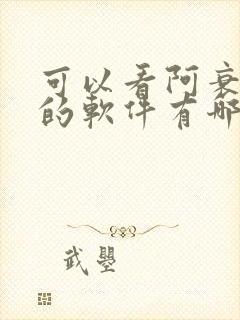 可以看阿衰
的軟件有哪
武曌